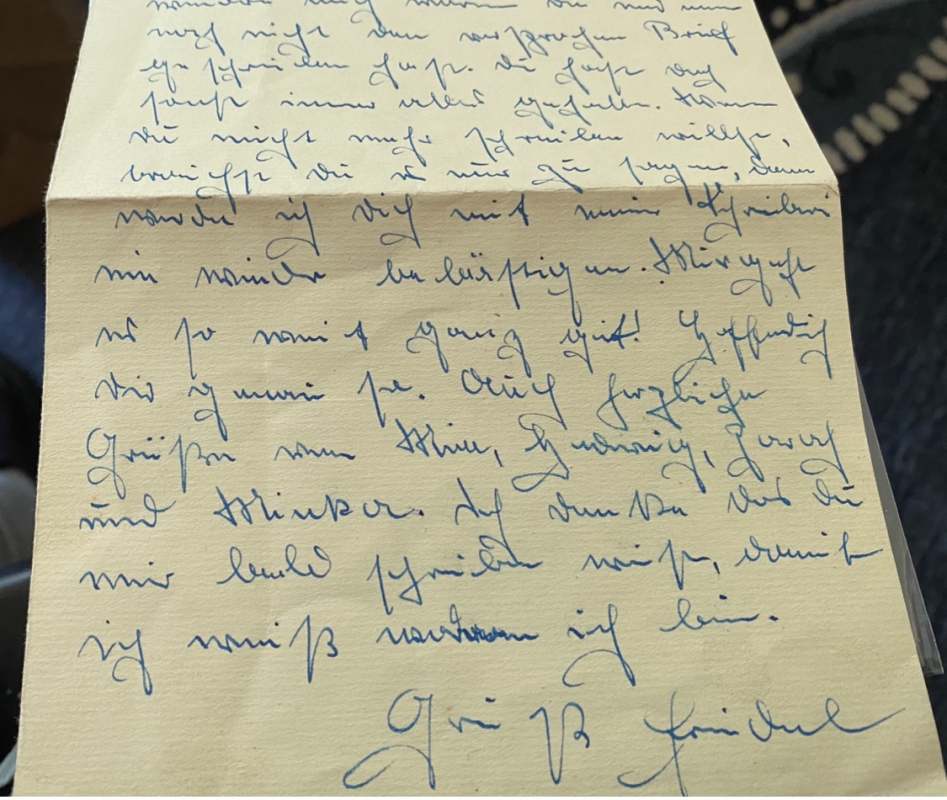 wundere mich warum du mir nun
noch nicht den versprochen Brief
geschrieben hast. Du hast doch
sonst immer alles gehalten. Wenn
du nicht mehr schreiben willst,
brauchst du es nur zu sagen, dann
werde ich dich mit mein Schreiben
nie wieder belästigen. Mir geht
es so weit ganz gut! Hoffendlich
dir genau so. Auch herzliche
Grüße von Mia, Hedwig,
und Minka. Ich denke das du
mir bald schreiben wirst, damit
ich weiß woran ich bin.
Gruß Friedel